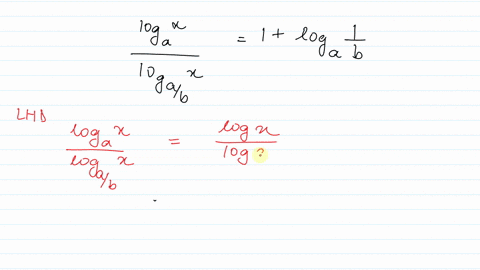 log_a x / log_{a/b} x = 1 + log_a 1/b
LHD
log_a x / log_{a/b} x = log x / log ?